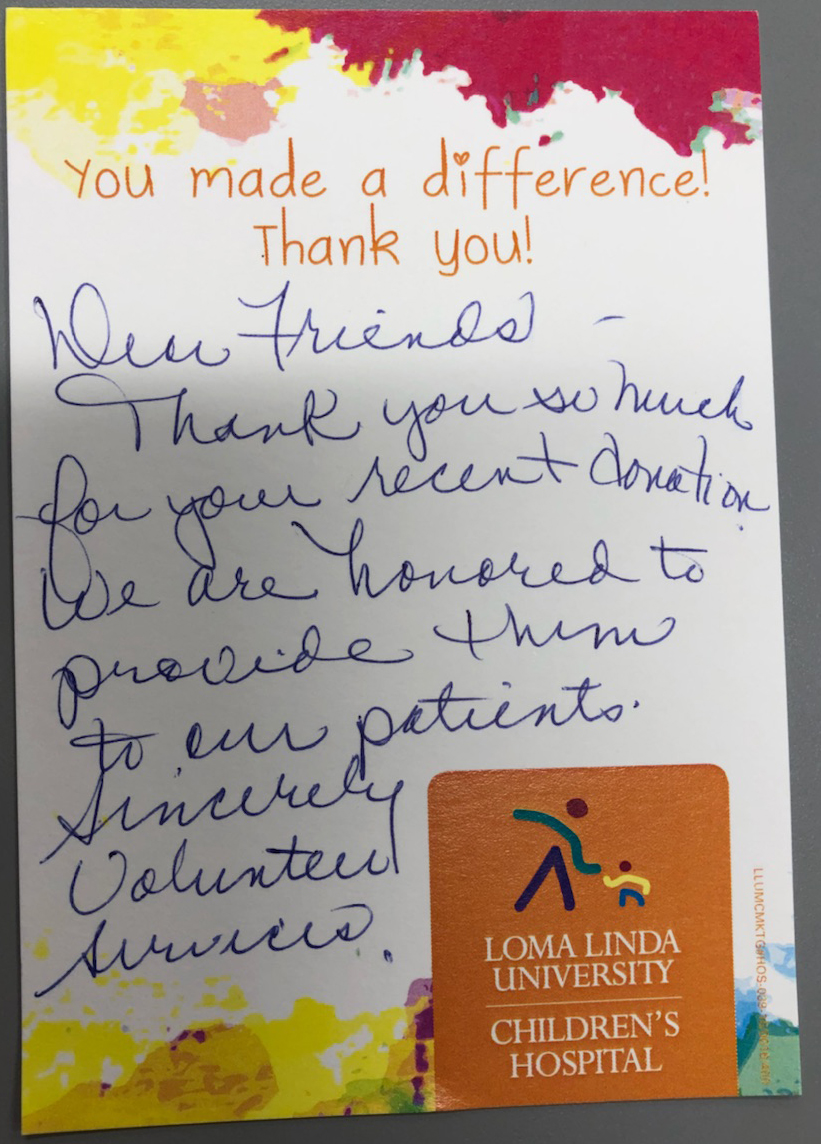 You made a difference!
Thank you!
Dear Friends -
Thank you so much
for your recent donation.
We are honored to
provide them
to our patients.
Sincerely
Volunteer
Services.
LOMA LINDA
UNIVERSITY
CHILDREN'S
HOSPITAL